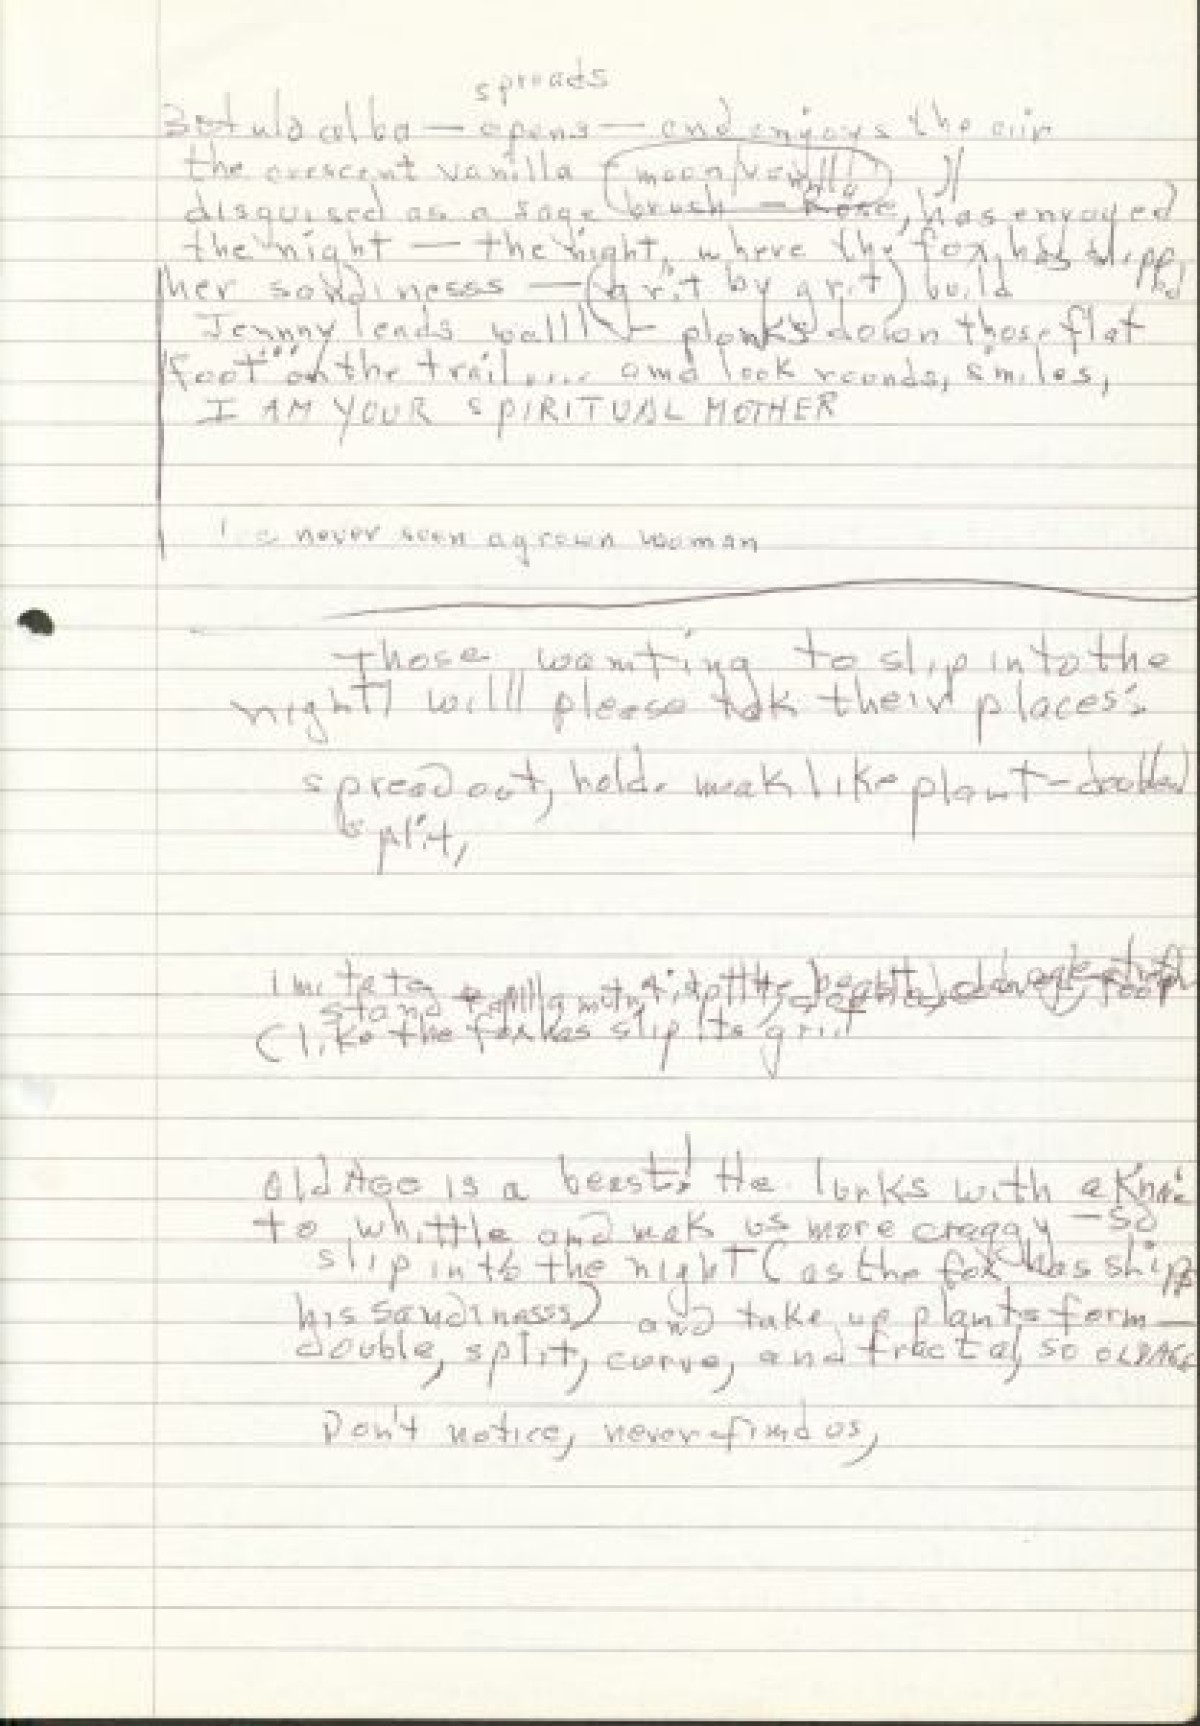 spreads
Betula alba — opens — and enjoys the air
the crescent vanilla (moon/vanilla)
disguised as a sage brush — Rose, has enyoyed
the night — the night, where the fox has slipped
her sandinesss — (grit by grit) build
Jennny leads balll — plonks down those flat
foot on the trail.... and look rounds, smiles,
I AM YOUR SPIRITUAL MOTHER
never seen a grown woman
Those wamting to slip into the
night willl please tak their places:
spread out, hold. meak like plant - doubled
split,
imitate
stand
(like the fox has slip its grit
old Age is a beast! He lurks with a Knife
to whittle and mak us more craggy — So
slip into the night (as the fox has slip
his sandinesss) and take up plants form —
double, split, curve, and fractal, so OLDAGE
Don't notice, never find us,